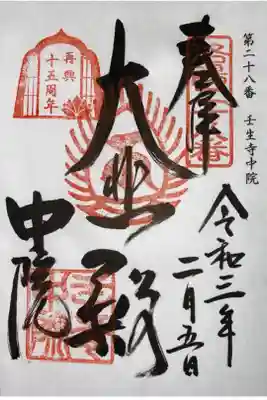 第二十八番 壬生寺中院
奉拝
令和三年
二月五日
大悲殿
中院
再興
十五周年